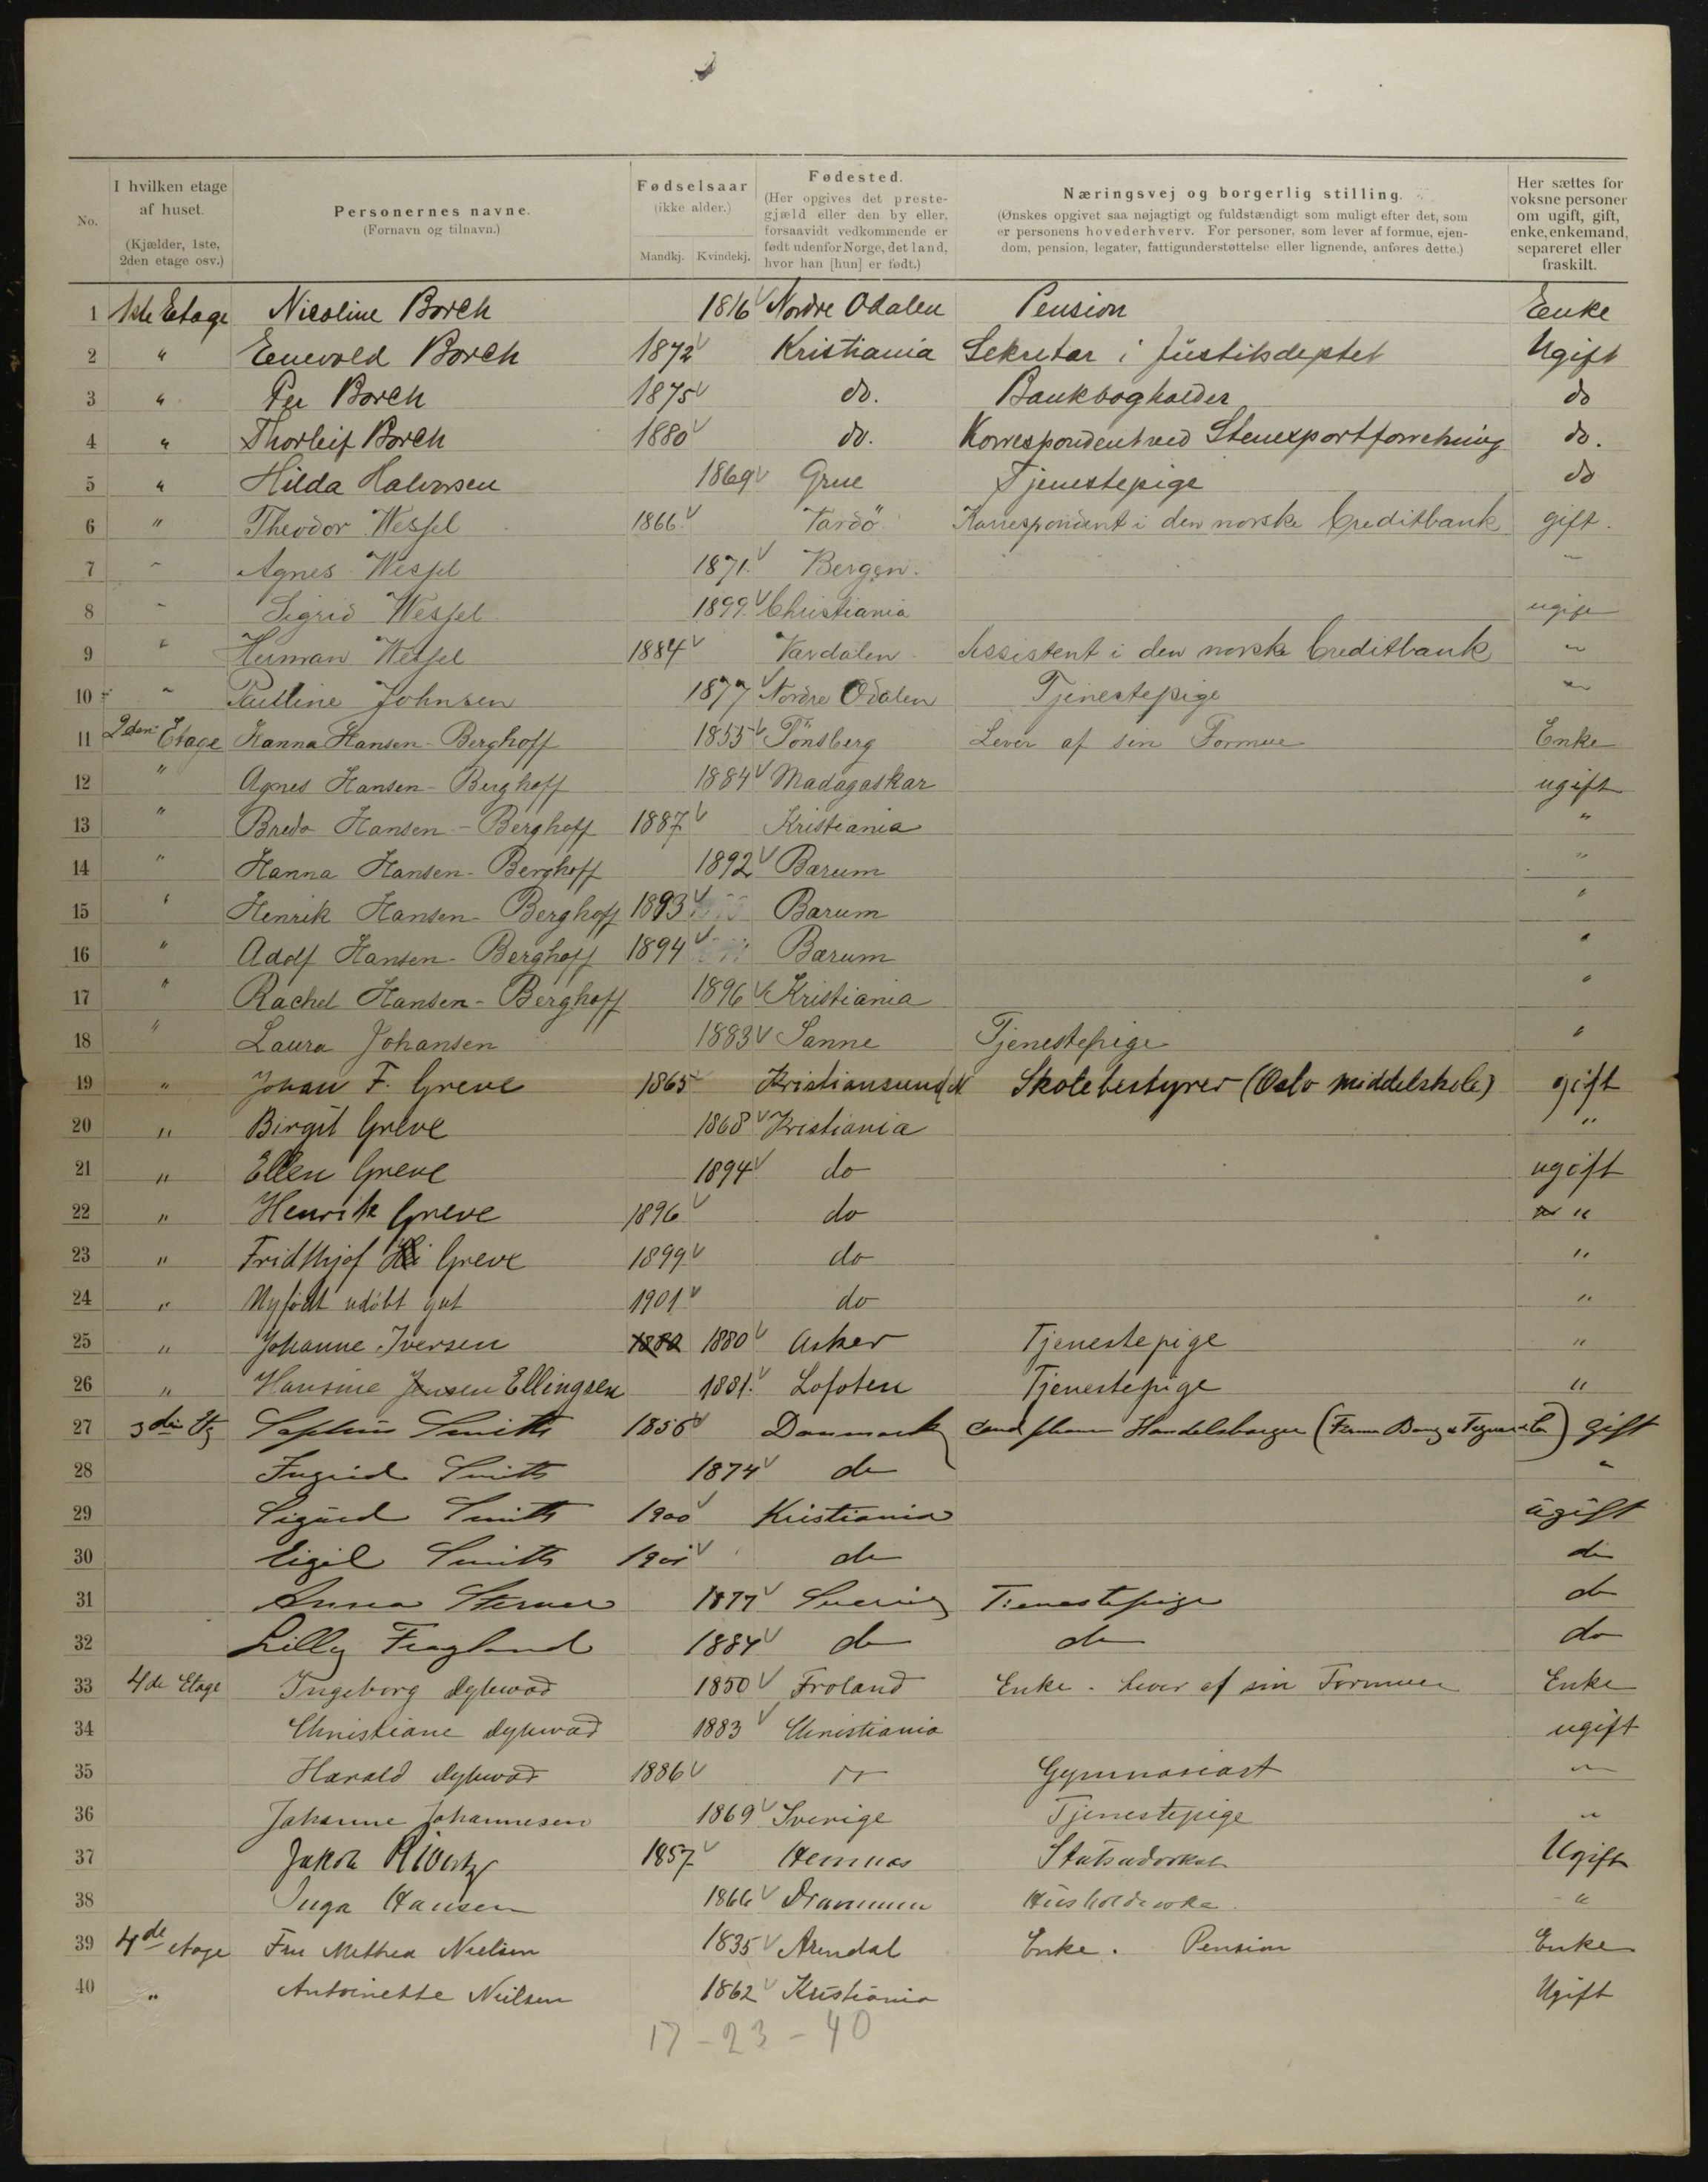 No.
I hvilken etage af huset.
(Kjælder, 1ste, 2den etage osv.)
Personernes navne.
(Fornavn og tilnavn.)
Fødselsaar
(ikke alder.)
Mandkj. Kvindekj.
Fødested.
(Her opgives det prestegjæld eller den by eller, forsaavidt vedkommende er født udenfor Norge, det land, hvor han [hun] er født.)
Næringsvej og borgerlig stilling.
(Ønskes opgivet saa nøjagtigt og fuldstændigt som muligt efter det, som er personens hovederhverv. For personer, som lever af formue, ejendom, pension, legater, fattigunderstøttelse eller lignende, anføres dette.)
Her sættes for voksne personer om ugift, gift, enke, enkemand, separeret eller fraskilt.
1 1ste Etage Nicoline Borch 1816 Nordre Odalen Pension Enke
2 " Enevold Borch 1872 Kristiania Sekretær i Justitsdeptet Ugift
3 " Per Borch 1875 do. Bankbogholder do
4 " Thorleif Borch 1880 do. Korrespondent ved Stenexportforretning do.
5 " Hilda Halvorsen 1869 Grue Tjenestepige do
6 " Theodor Wessel 1866 Vardö Korrespondent i den norske Creditbank gift.
7 " Agnes Wessel 1871. Bergen. "
8 " Sigrid Wessel 1899. Christiania ugift
9 " Herman Wessel 1884 Værdalen Assistent i den norske Creditbank "
10 " Pauline Johnsen 1877 Nordre Odalen Tjenestepige "
11 2den Etage Hanna Hansen-Berghoff 1855 Tönsberg Lever af sin Formue Enke
12 " Agnes Hansen-Berghoff 1884 Madagaskar ugift
13 " Bredo Hansen-Berghoff 1887 Kristiania "
14 " Hanna Hansen-Berghoff 1892 Bærum "
15 " Henrik Hansen-Berghoff 1893 Bærum "
16 " Adolf Hansen-Berghoff 1894 Bærum "
17 " Rachel Hansen-Berghoff 1896 Kristiania "
18 " Laura Johansen 1883 Sanne Tjenestepige "
19 " Johan F. Greve 1865 Kristiansund N Skolebestyrer (Oslo middelskole) gift
20 " Birgit Greve 1868 Kristiania "
21 " Ellen Greve 1894 do ugift
22 " Henrik Greve 1896 do "
23 " Fridthjof Greve 1899 do "
24 " Nyfødt udøbt gut 1901 do "
25 " Johanne Iversen 1880 1880 Asker Tjenestepige "
26 " Hansine Jensen Ellingsen 1881. Lofoten Tjenestepige "
27 3die Etg Sophus Smith 1856 Danmark cand pharm Handelsborger (Firma Bang & Tegner & Co) gift
28 Ingrid Smith 1874 do "
29 Sigurd Smith 1900 Kristiania ugift
30 Eigil Smith 1901 do do
31 Anna Sterner 1877 Sverig Tienestepige do
32 Lilly Fragland 1884 do do do
33 4de Etage Ingeborg Dybwad 1850 Froland Enke. Lever af sin Formue Enke
34 Christiane Dybwad 1883 Christiania ugift
35 Harald Dybwad 1886 do Gymnasiast "
36 Johanne Johannesen 1869 Sverige Tjenestepige "
37 Jakob Rivertz 1857 Hemnæs Statsadvokat Ugift
38 Inga Hansen 1866 Drammen Husholderske "
39 4de etage Fru Methea Nielsen 1835 Arendal Enke. Pension Enke
40 " Antoinette Nielsen 1862 Kristiania Ugift
17-23-40